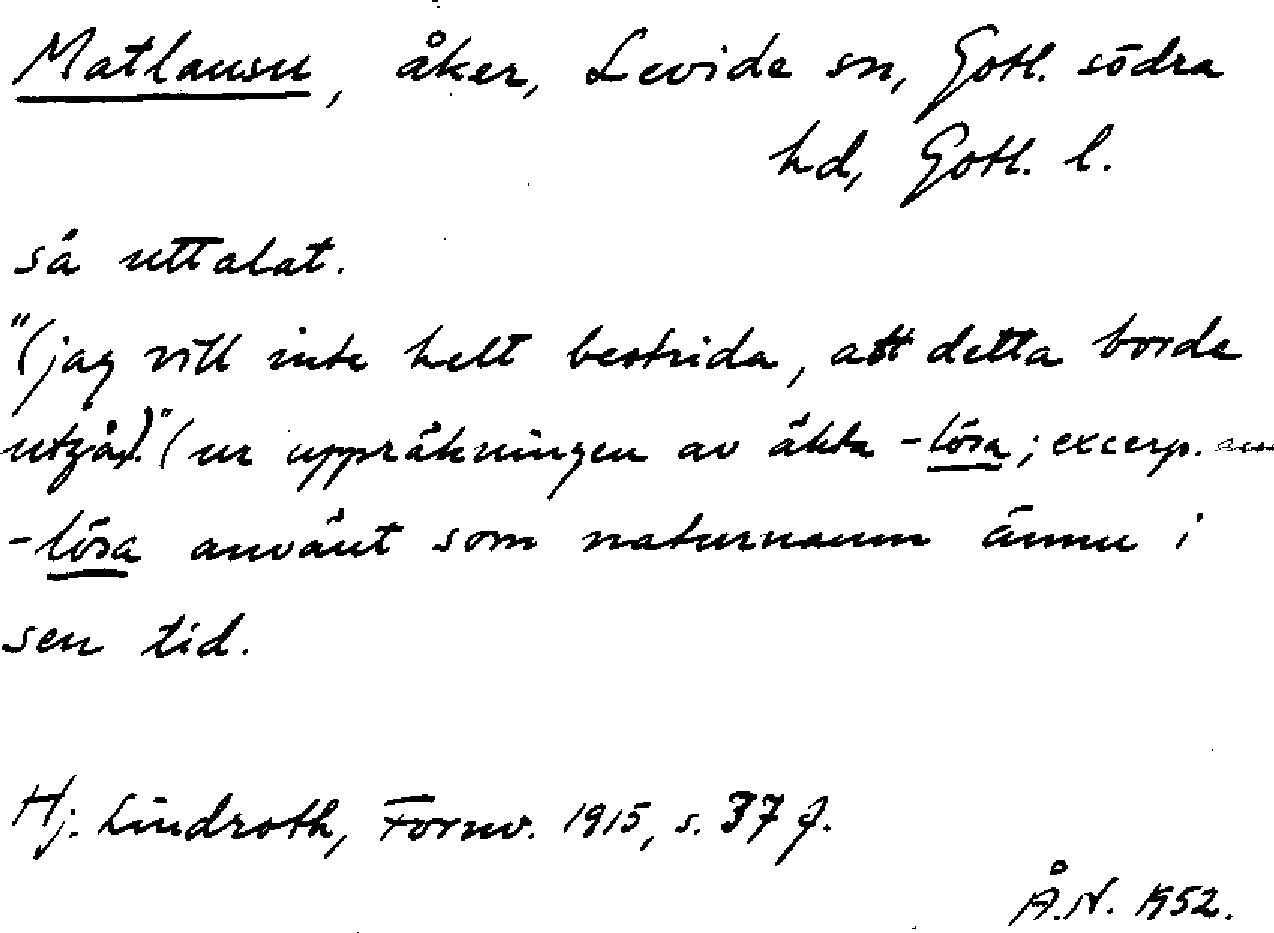 Matlausu, åker, Levide sn, Gotl. södra
hd, Gotl. l.
så uttalat.
"(jag vill inte helt bestrida, att detta borde
utgå)." (ur uppräkningen av äkta -lösa; excerp. anm
-lösa använt som naturnamn ännu i
sen tid.
Hj. Lindroth, Fornv. 1915, s. 37 f.
Å.N. 1952.